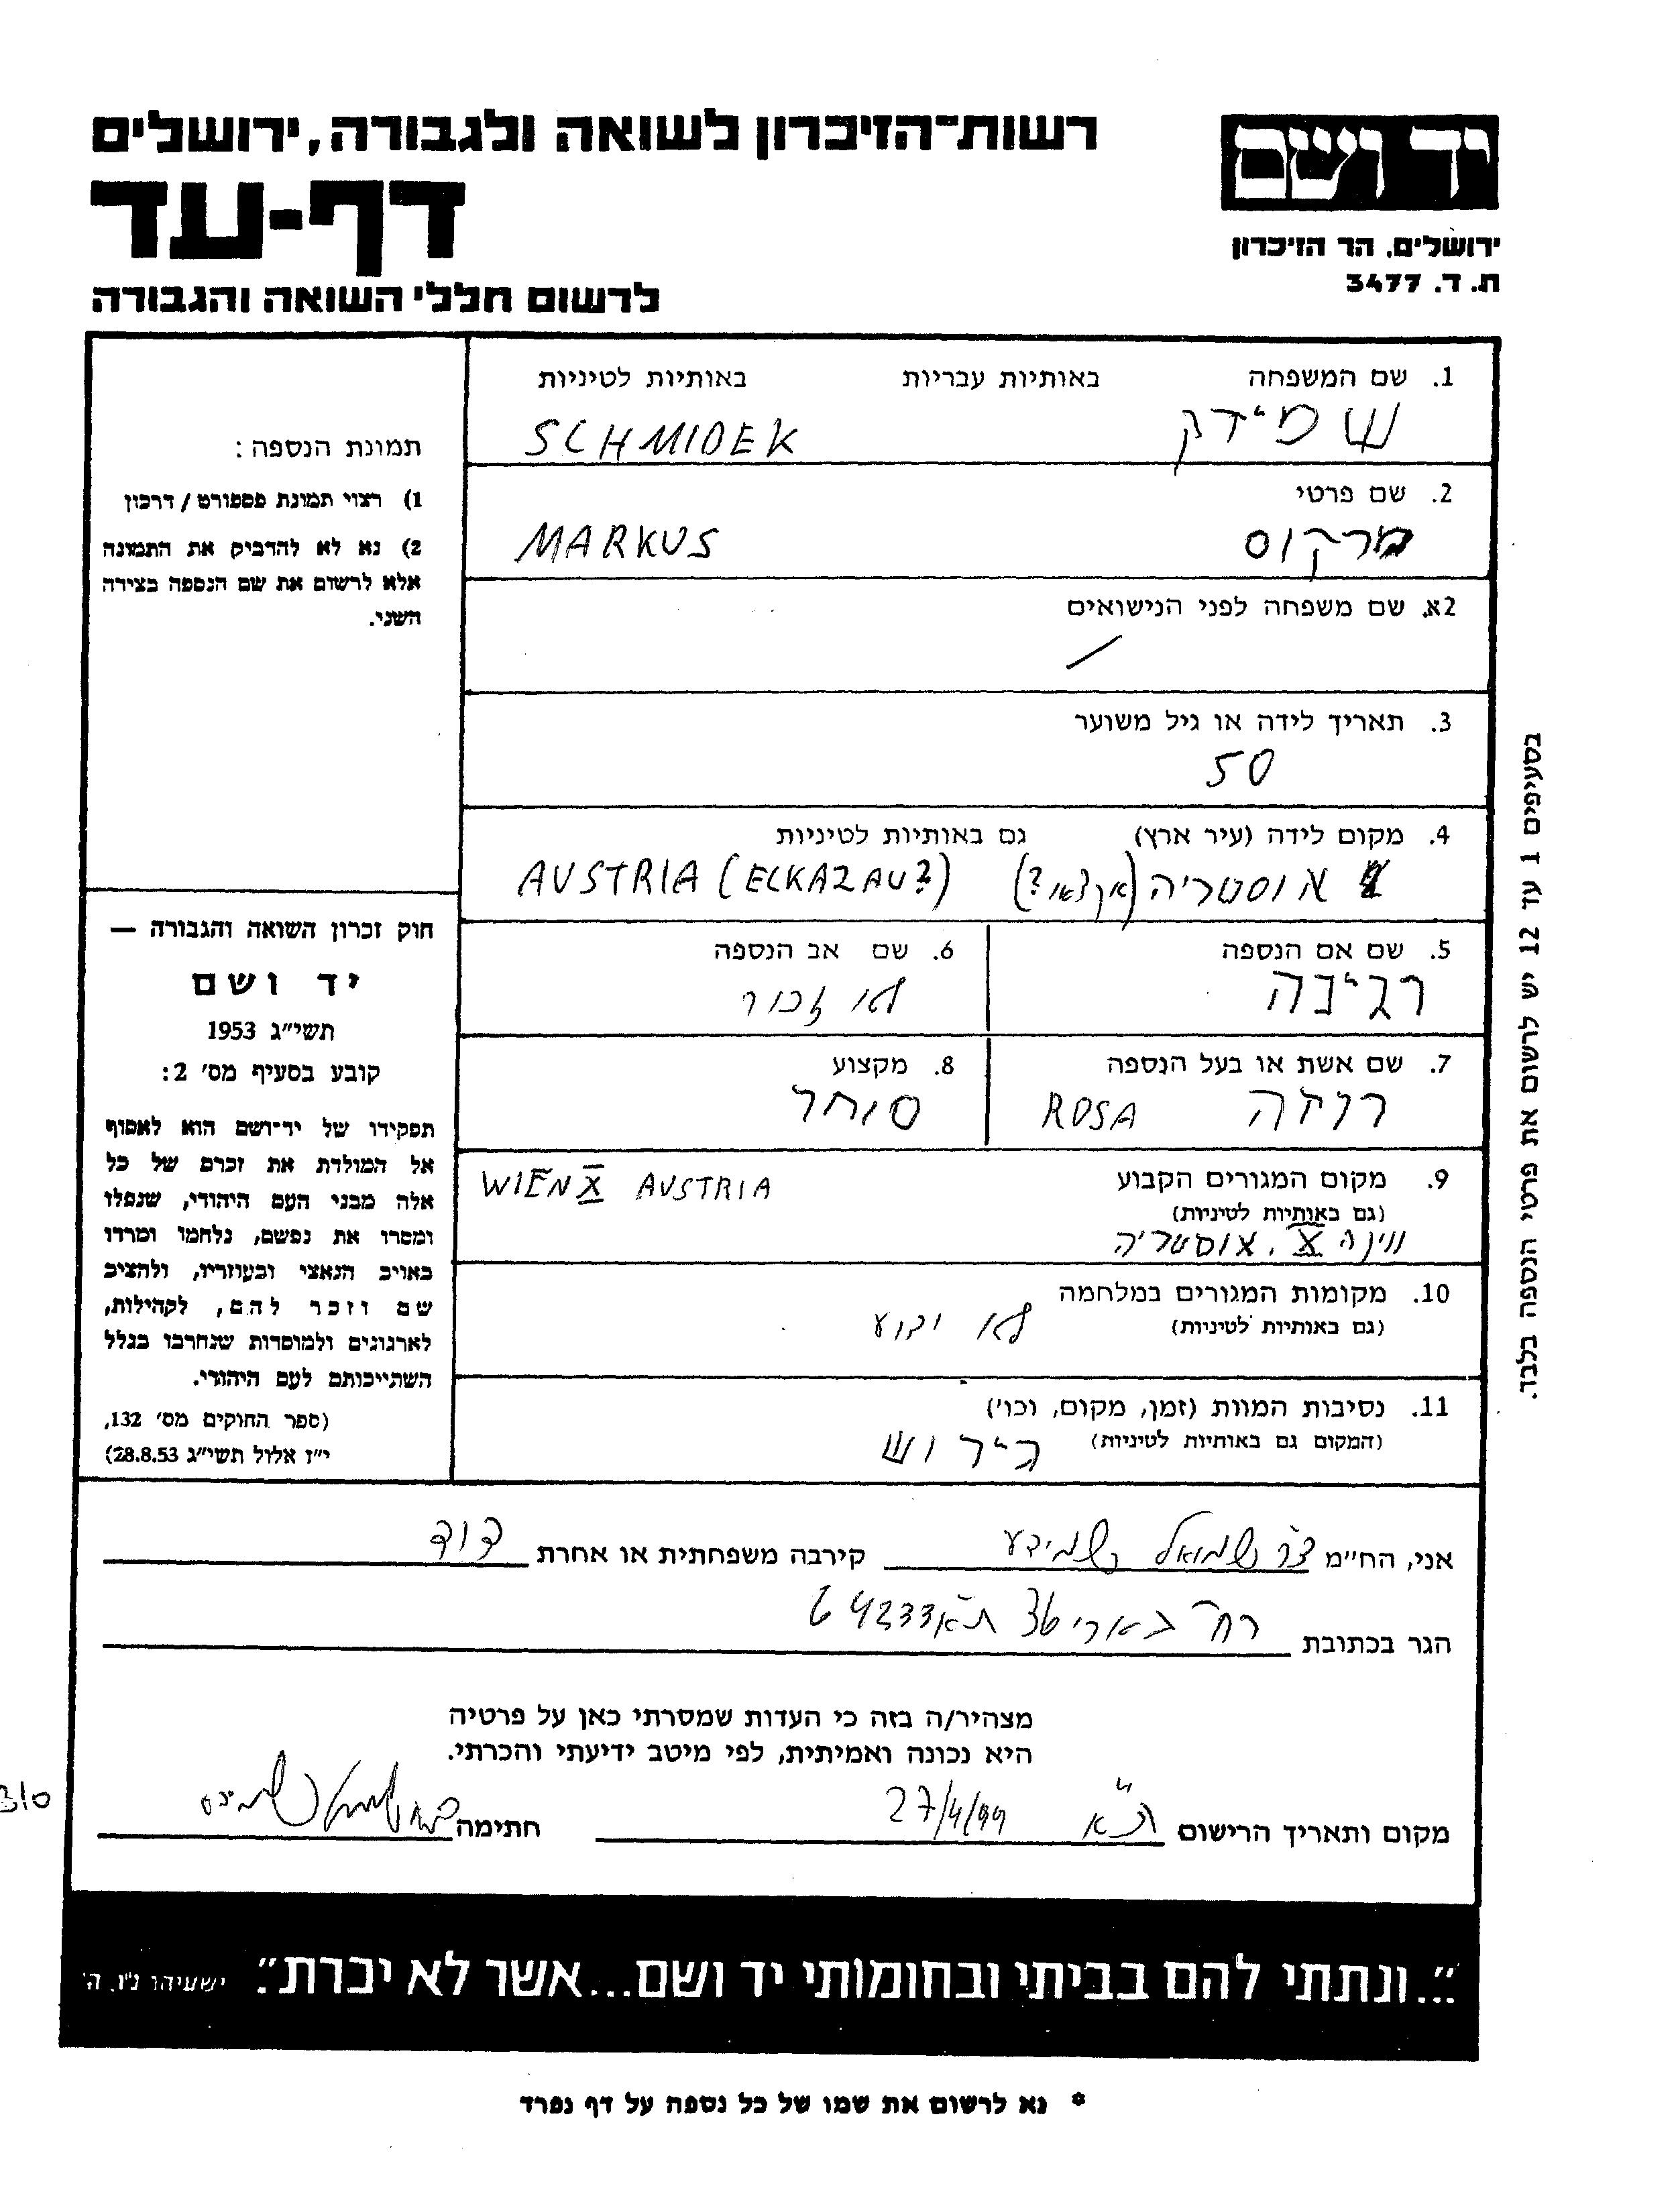 רשות־הזיכרון לשואה ולגבורה, ירושלים
דף-עד
לרשום חללי השואה והגבורה
יד ושם
ירושלים, הר הזיכרון
ת. ד. 3477
1. שם המשפחה באותיות עבריות באותיות לטיניות
שמידק SCHMIDEK
2. שם פרטי
מרקוס MARKUS
2א. שם משפחה לפני הנישואים
/
3. תאריך לידה או גיל משוער
50
4. מקום לידה (עיר ארץ) גם באותיות לטיניות
אוסטריה AUSTRIA (ELKAZAU?)
5. שם אם הנספה 6. שם אב הנספה
רביבה לא זכור
7. שם אשת או בעל הנספה 8. מקצוע
רוזה ROSA סוחר
9. מקום המגורים הקבוע
WIEN X AUSTRIA
(גם באותיות לטיניות)
וינה X. אוסטריה
10. מקומות המגורים במלחמה
(גם באותיות לטיניות)
לא ידוע
11. נסיבות המוות (זמן, מקום, וכו')
(המקום גם באותיות לטיניות)
גירוש
תמונת הנספה:
1) רצוי תמונת פספורט / דרכון
2) נא לא להדביק את התמונה
אלא לרשום את שם הנספה בצידה
השני.
חוק זכרון השואה והגבורה —
יד ושם
תשי"ג 1953
קובע בסעיף מס' 2:
תפקידו של יד־ושם הוא לאסוף
אל המולדת את זכרם של כל
אלה מבני העם היהודי, שנפלו
ומסרו את נפשם, נלחמו ומרדו
באויב הנאצי ובעוזריו, ולהציב
שם וזכר להם, לקהילות,
לארגונים ולמוסדות שנחרבו בגלל
השתייכותם לעם היהודי.
(ספר החוקים מס' 132,
י"ז אלול תשי"ג 28.8.53)
בסעיפים 1 עד 12 יש לרשום את פרטי הנספה בלבד.
אני, הח"מ שמואל קירבה משפחתית או אחרת דוד
הגר בכתובת רח' בארי 36 ת"א 64233
מצהיר/ה בזה כי העדות שמסרתי כאן על פרטיה
היא נכונה ואמיתית, לפי מיטב ידיעתי והכרתי.
מקום ותאריך הרישום ת"א 27/4/99 חתימה
"...ונתתי להם בביתי ובחומותי יד ושם...אשר לא יכרת". ישעיהו נ"ו, ה'
* נא לרשום את שמו של כל נספה על דף נפרד